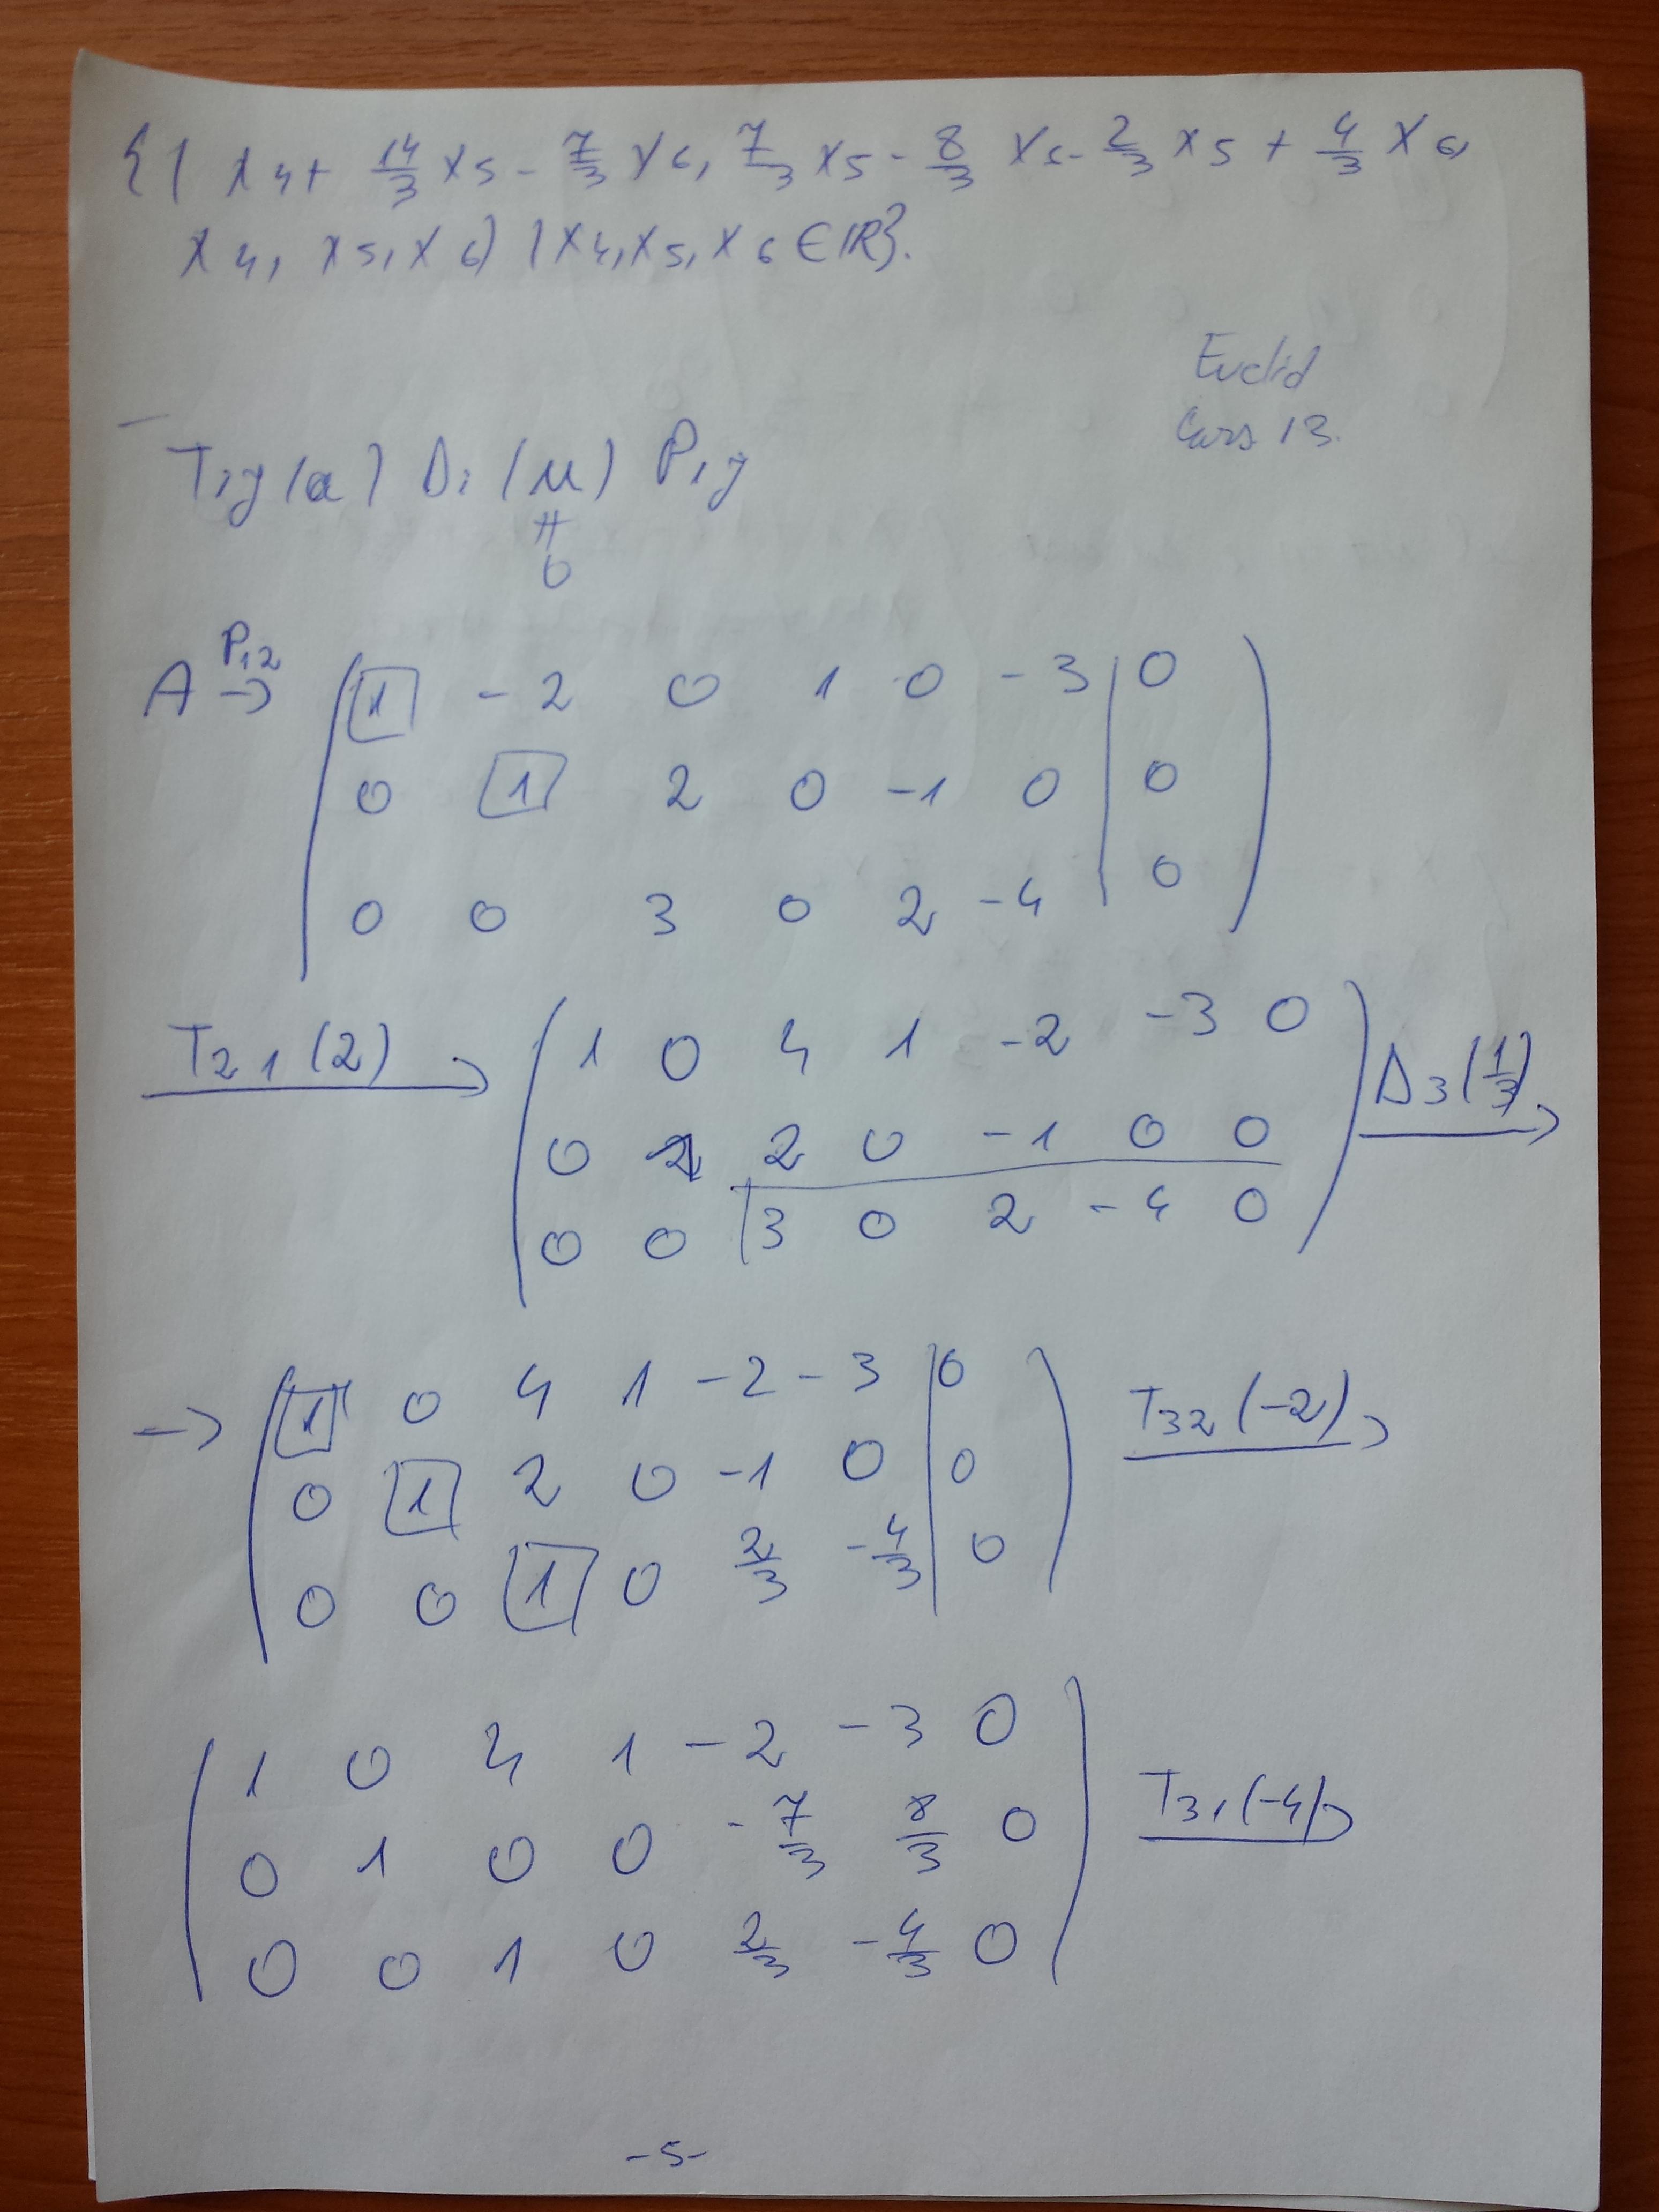 {( x4 + 14/3 x5 - 7/3 x6, 7/3 x5 - 8/3 x6 - 2/3 x5 + 4/3 x6,
x4, x5, x6) | x4, x5, x6 ∈ R}.
Euclid
Curs 13.
Tij(a) Di(u) Pij
≠
0
A P12 → ( 1 -2 0 1 0 -3 | 0
0 1 2 0 -1 0 | 0
0 0 3 0 2 -4 | 0 )
T21(2) → ( 1 0 4 1 -2 -3 0
0 1 2 0 -1 0 0
0 0 3 0 2 -4 0 ) D3(1/3) →
→ ( 1 0 4 1 -2 -3 | 0
0 1 2 0 -1 0 | 0
0 0 1 0 2/3 -4/3 | 0 ) T32(-2) →
( 1 0 4 1 -2 -3 0
0 1 0 0 -7/3 8/3 0
0 0 1 0 2/3 -4/3 0 ) T31(-4) →
-5-